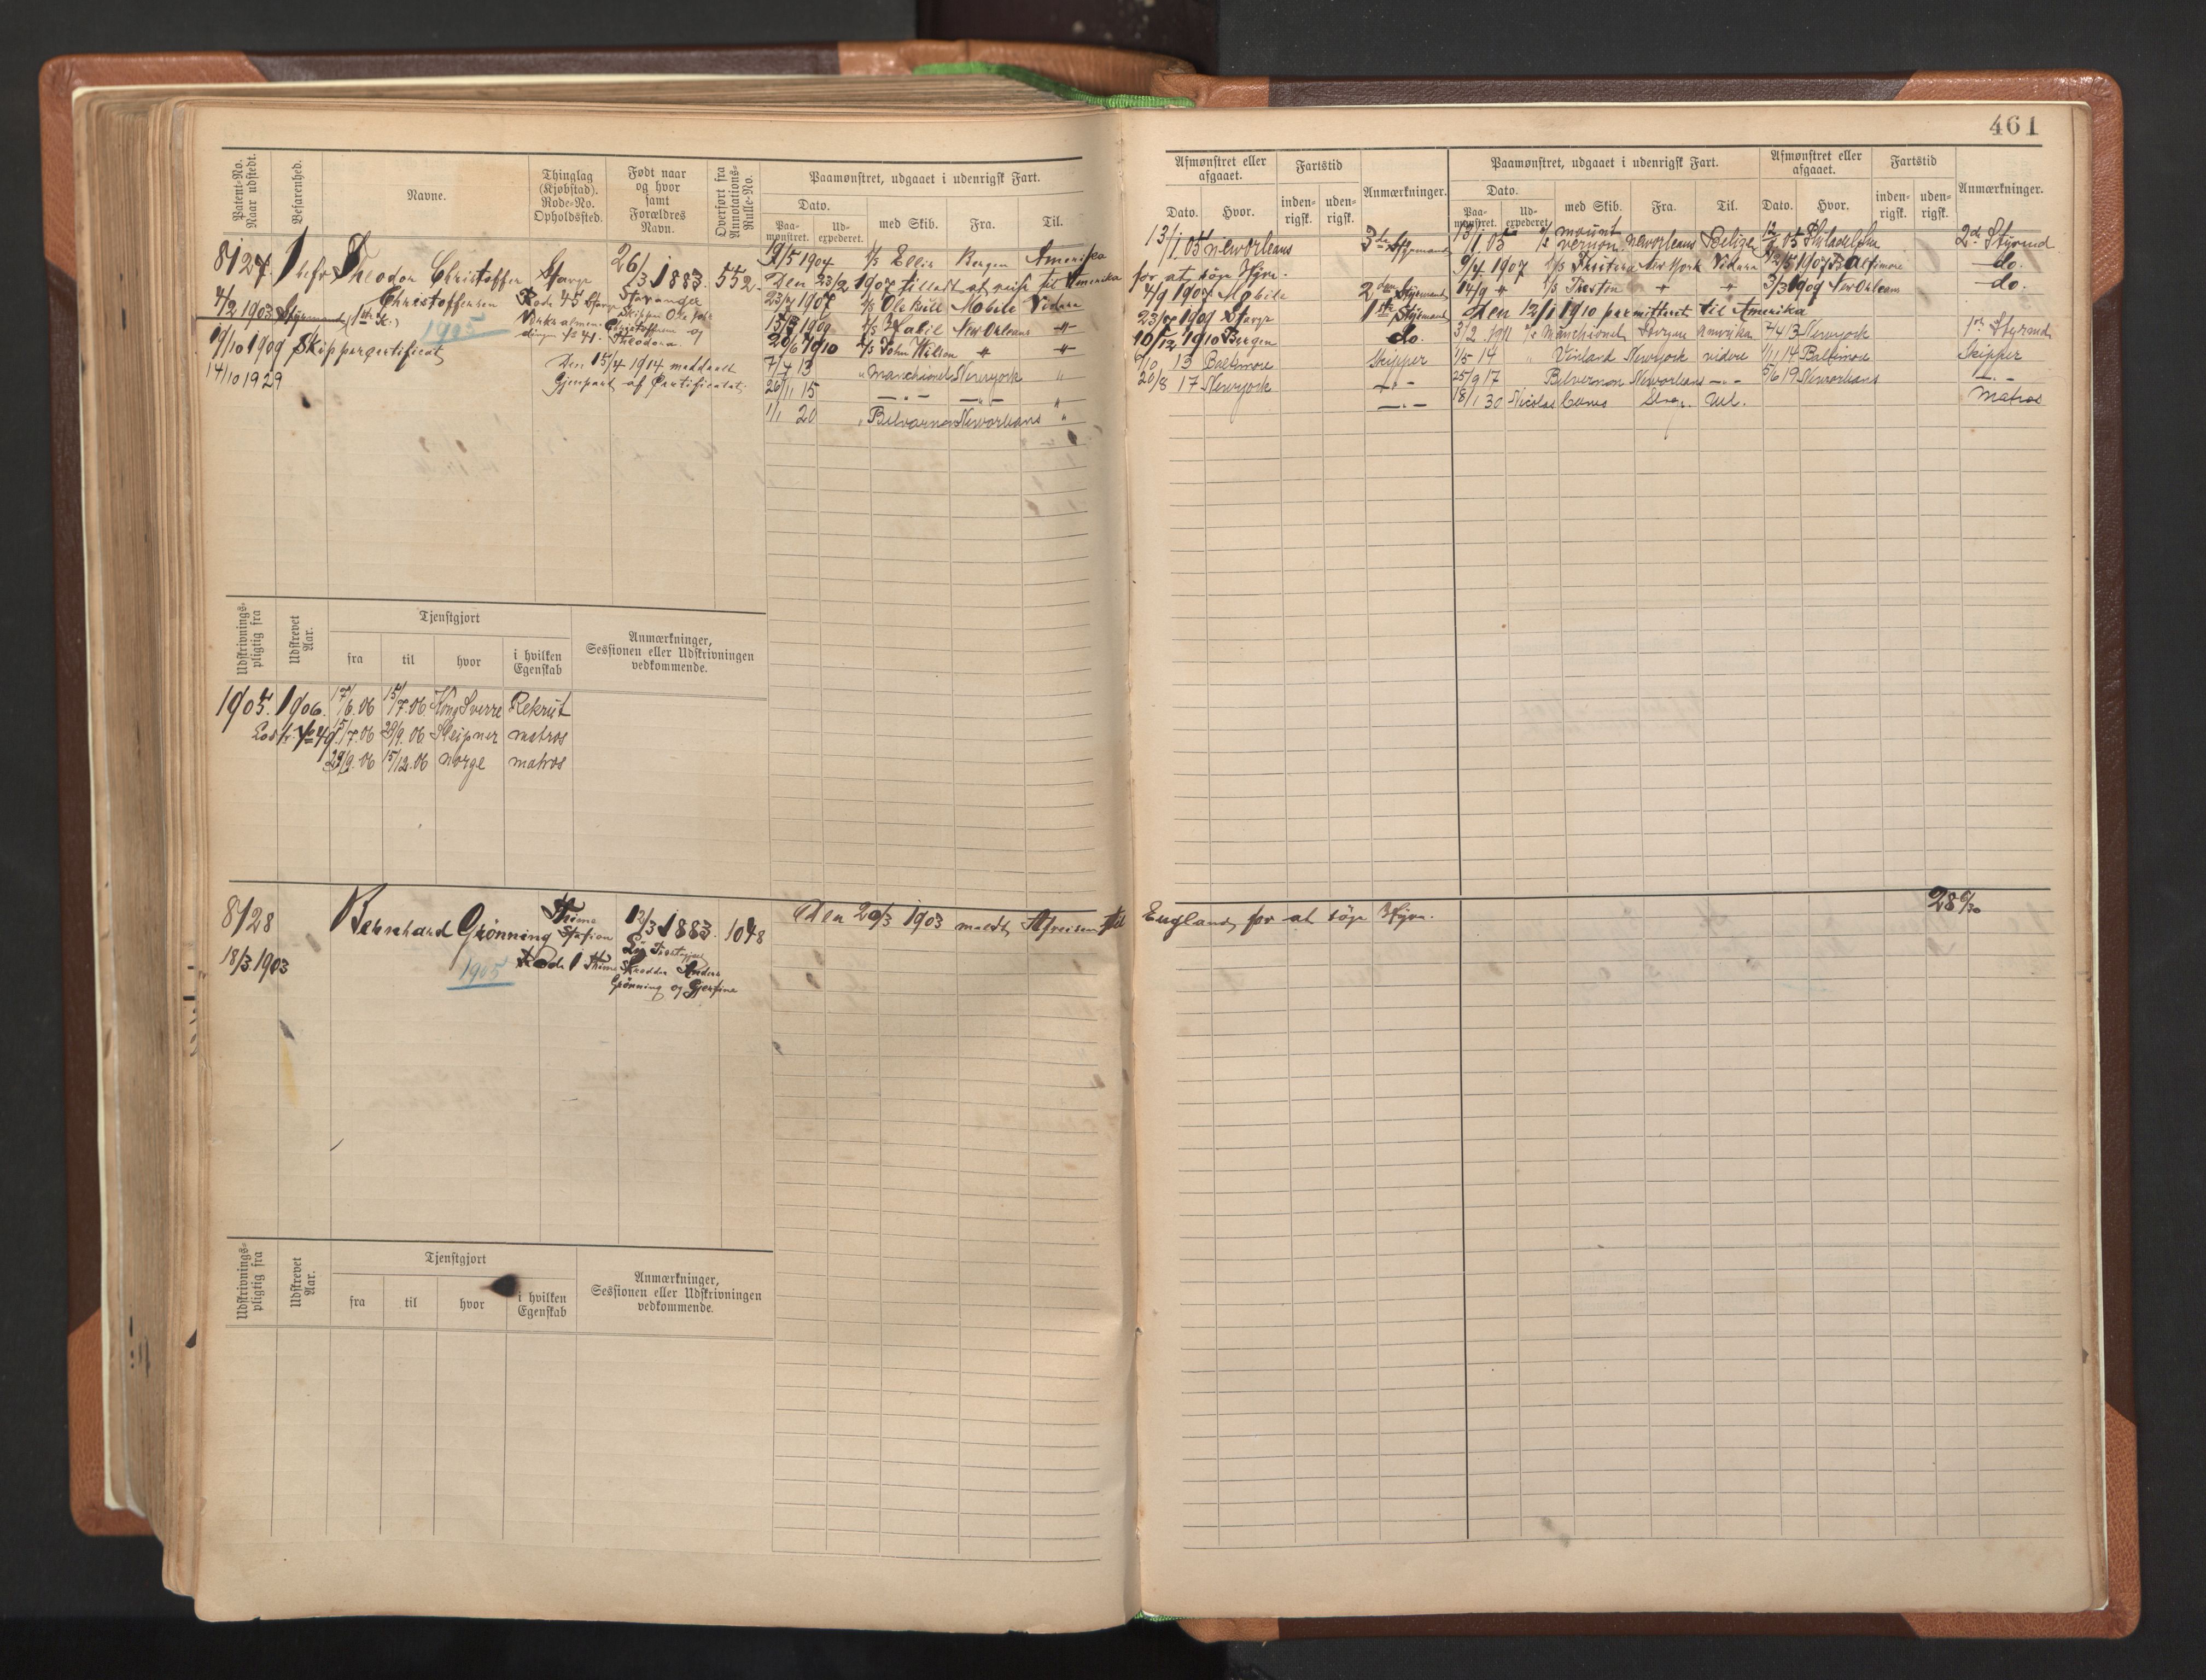 461
Patent-No. Naar udstedt.
Befarenhed.
Navne.
Thinglag (Kjøbstad). Rode-No. Opholdssted.
Født naar og hvor samt Forældres Navn.
Overført fra Annotations-Rulle-No.
Paamønstret, udgaaet i udenrigsk Fart.
Dato.
Paa-mønstret.
Ud-expederet.
med Skib.
Fra.
Til.
Afmønstret eller afgaaet.
Dato.
Hvor.
Fartstid
inden-rigsk.
uden-rigsk.
Anmærkninger.
Paamønstret, udgaaet i udenrigsk Fart.
Dato.
Paa-mønstret.
Ud-expederet.
med Skib.
Fra.
Til.
Afmønstret eller afgaaet.
Dato.
Hvor.
Fartstid
inden-rigsk.
uden-rigsk.
Anmærkninger.
8127. Theodor Christoffer Stavgr 26/3 1883. 552.
Christoffersen Rode 45 Stavgr Stavanger
4/2 1903 Styrmand (1ste Kl.) 1905 Skipper Ole
Christoffersen og
Theodora.
19/10 1909 Skippercertificat
14/10 1929
Den 15/4 1914 meddelt
Gjenpart af Certificatet.
19/5 1904 Ellis Bergen Amerika
Den 23/2 1907 tilledt at reise til Amerika
23/4 1907 Ole Bull Mobile Videre
15/3 1909 New Orleans "
20/6 1910 John Wilson " "
7/4 13 " Manchioneal Newyork "
26/11 15 — " — — " — "
1/1 20 " Belvernon Neworleans "
13/1 05 Neworleans 3de Styrmand
for at søge Hyre.
4/9 1907 Mobile 2den Styrmand
23/7 1909 Stavgr 1ste Styrmand
10/12 1910 Bergen do.
/10 13 Baltimore Skipper
20/8 17 Newyork — " —
— " —
13/1 05 mount vernon Neworleans Belize 12/ 05 Philadelphia 2d Styrmd
9/4 1907 New York Videre 12/5 1907 Baltimore do.
14/9 " " " 3/3 1909 New Orleans do.
Den 12/1 1910 permitteret til Amerika
3/2 1911 Manchioneal Bergen Amerika 7/4 13 Newyork 1ste Styrmd
1/5 14 " Vinland Newyork videre 1/11 14 Baltimore Skipper
25/9 17 Belvernon Neworleans — " — 5/6 19 Neworleans — " —
18/1 30 Nicolas Cuneo Stvgr. Utl. Matros
Udskrivnings-pligtig fra
Udskrevet Aar.
Tjenstgjort
fra
til
hvor
i hvilken Egenskab
Anmærkninger, Sessionen eller Udskrivningen vedkommende.
1905. 1906. 17/6.06 15/7.06 Kong Sverre Rekrut
Lodtr. No 49 15/7.06 29/9.06 Sleipner matros
29/9.06 15/12.06 Norge matros
8128 Bernhard Grønning Thime Station 12/3 1883. 1048
18/3 1903 1905 Rode 1 Thime Skrædder Anders
Grønning og Gjertine
Den 20/3 1903 meldt Afreisen til England, for at søge Hyre.
28 6/30
Udskrivnings-pligtig fra
Udskrevet Aar.
Tjenstgjort
fra
til
hvor
i hvilken Egenskab
Anmærkninger, Sessionen eller Udskrivningen vedkommende.